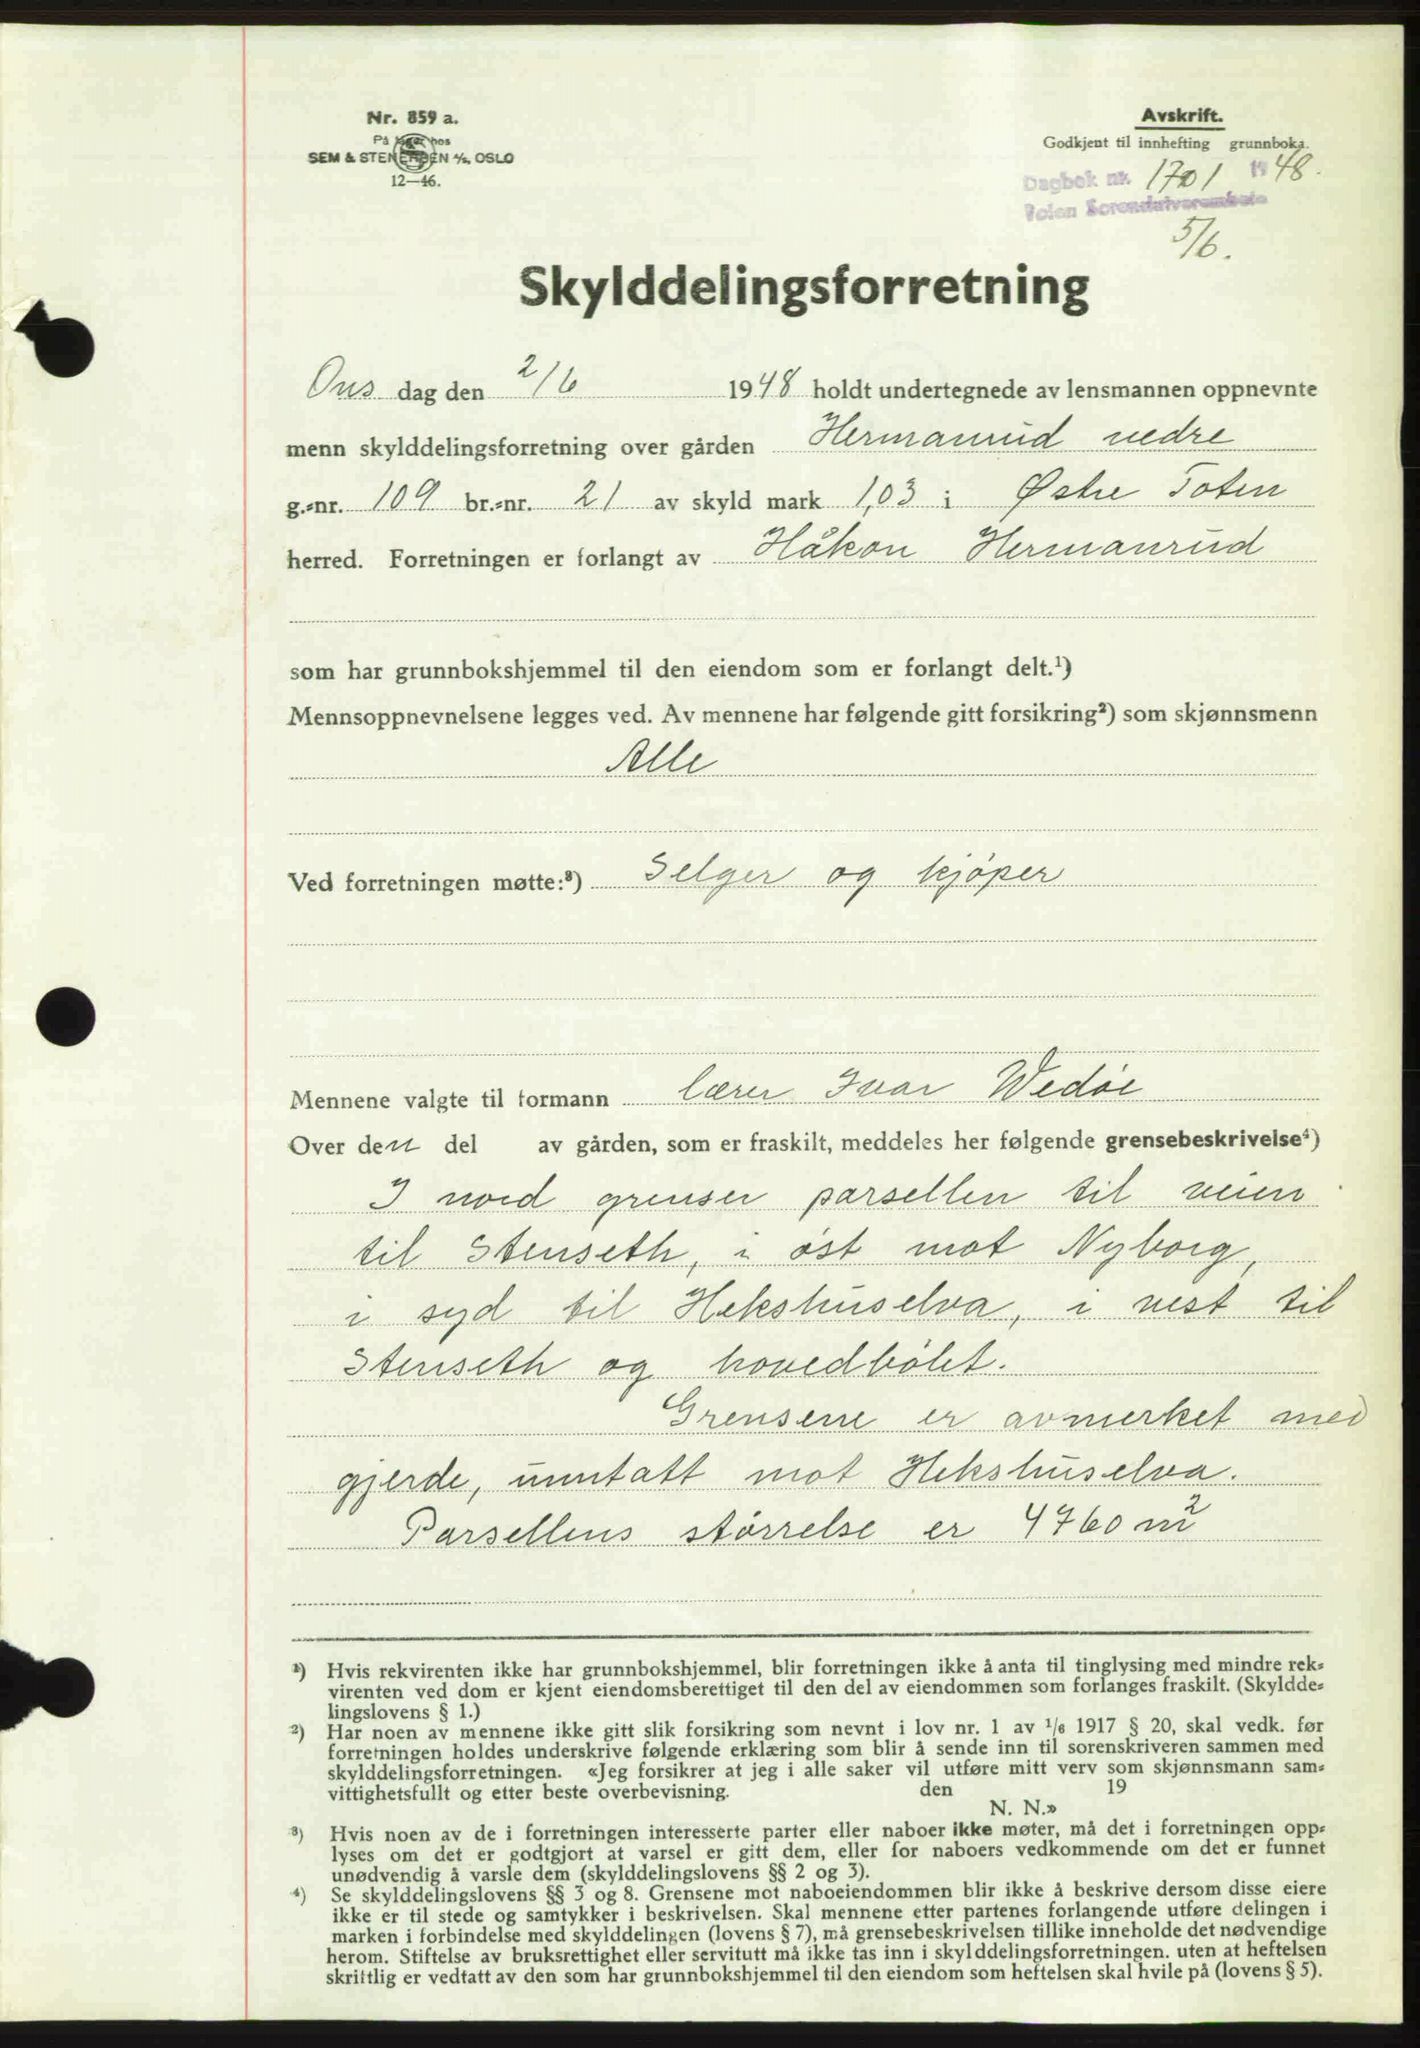 Nr. 859 a.
På lager hos
SEM & STENERSEN A/S, OSLO
12—46.
Avskrift.
Godkjent til innhefting grunnboka.
Dagbok nr. 1701 1948.
Toten Sorenskriverembete
5/6.
Skylddelingsforretning
Ons dag den 2/6 1948 holdt undertegnede av lensmannen oppnevnte
menn skylddelingsforretning over gården Hermanrud nedre
g.=nr. 109 br.=nr. 21 av skyld mark 1,03 i Østre Toten
herred. Forretningen er forlangt av Håkon Hermanrud
som har grunnbokshjemmel til den eiendom som er forlangt delt.¹)
Mennsoppnevnelsene legges ved. Av mennene har følgende gitt forsikring²) som skjønnsmenn
Alle
Ved forretningen møtte:³) Selger og kjøper
Mennene valgte til formann lærer Ivar Wedøe
Over den del av gården, som er fraskilt, meddeles her følgende grensebeskrivelse⁴)
I nord grenser parsellen til veien
til Stenseth, i øst mot Nyborg,
i syd til Hekshuselva, i vest til
Stenseth og hovedbølet.
Grensene er avmerket med
gjerde, unntatt mot Hekshuselva.
Parsellens størrelse er 4760 m²
¹) Hvis rekvirenten ikke har grunnbokshjemmel, blir forretningen ikke å anta til tinglysing med mindre rek=
virenten ved dom er kjent eiendomsberettiget til den del av eiendommen som forlanges fraskilt. (Skyldde=
lingslovens § 1.)
²) Har noen av mennene ikke gitt slik forsikring som nevnt i lov nr. 1 av 1/6 1917 § 20, skal vedk. før
forretningen holdes underskrive følgende erklæring som blir å sende inn til sorenskriveren sammen med
skylddelingsforretningen. «Jeg forsikrer at jeg i alle saker vil utføre mitt verv som skjønnsmann sam=
vittighetsfullt og etter beste overbevisning. den 19
N. N.»
³) Hvis noen av de i forretningen interesserte parter eller naboer ikke møter, må det i forretningen opp=
lyses om det er godtgjort at varsel er gitt dem, eller for naboers vedkommende om det er funnet
unødvendig å varsle dem (skylddelingslovens §§ 2 og 3).
⁴) Se skylddelingslovens §§ 3 og 8. Grensene mot naboeiendommen blir ikke å beskrive dersom disse eiere
ikke er til stede og samtykker i beskrivelsen. Skal mennene etter partenes forlangende utføre delingen i
marken i forbindelse med skylddelingen (lovens § 7), må grensebeskrivelsen tillike inneholde det nødvendige
herom. Stiftelse av bruksrettighet eller servitutt må ikke tas inn i skylddelingsforretningen. uten at heftelsen
skriftlig er vedtatt av den som har grunnbokshjemmel til den eiendom som heftelsen skal hvile på (lovens § 5).